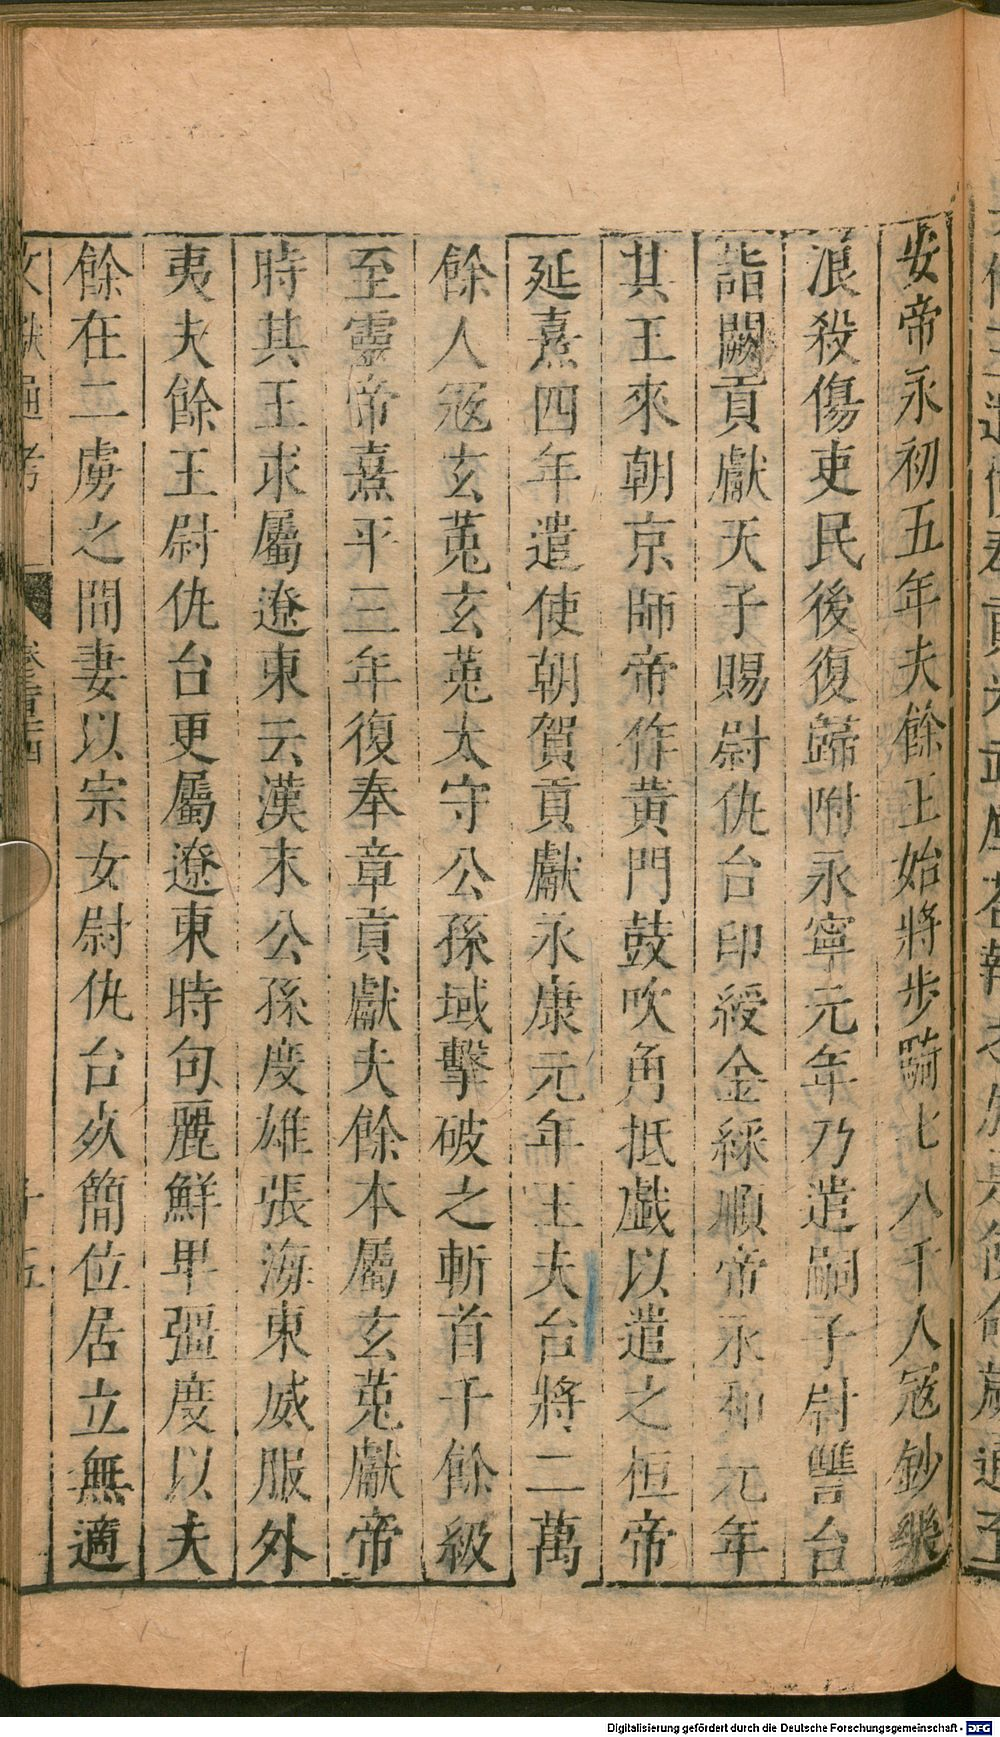 安帝永初五年夫餘王始將步騎七八千人寇鈔樂
浪殺傷吏民後復歸附永寧元年乃遣嗣子尉讐台
詣闕貢獻天子賜尉仇台印綬金綵順帝永和元年
其王來朝京師帝作黃門鼓吹角抵戲以遣之桓帝
延熹四年遣使朝賀貢獻永康元年王夫台將二萬
餘人寇玄菟玄菟太守公孫域擊破之斬首千餘級
至靈帝熹平三年復奉章貢獻夫餘本屬玄菟獻帝
時其王求屬遼東云漢末公孫度雄張海東威服外
夷夫餘王尉仇台更屬遼東時句麗鮮卑彊度以夫
餘在二虜之間妻以宗女尉仇台死簡位居立無適
Digitalisierung gefördert durch die Deutsche Forschungsgemeinschaft - DFG